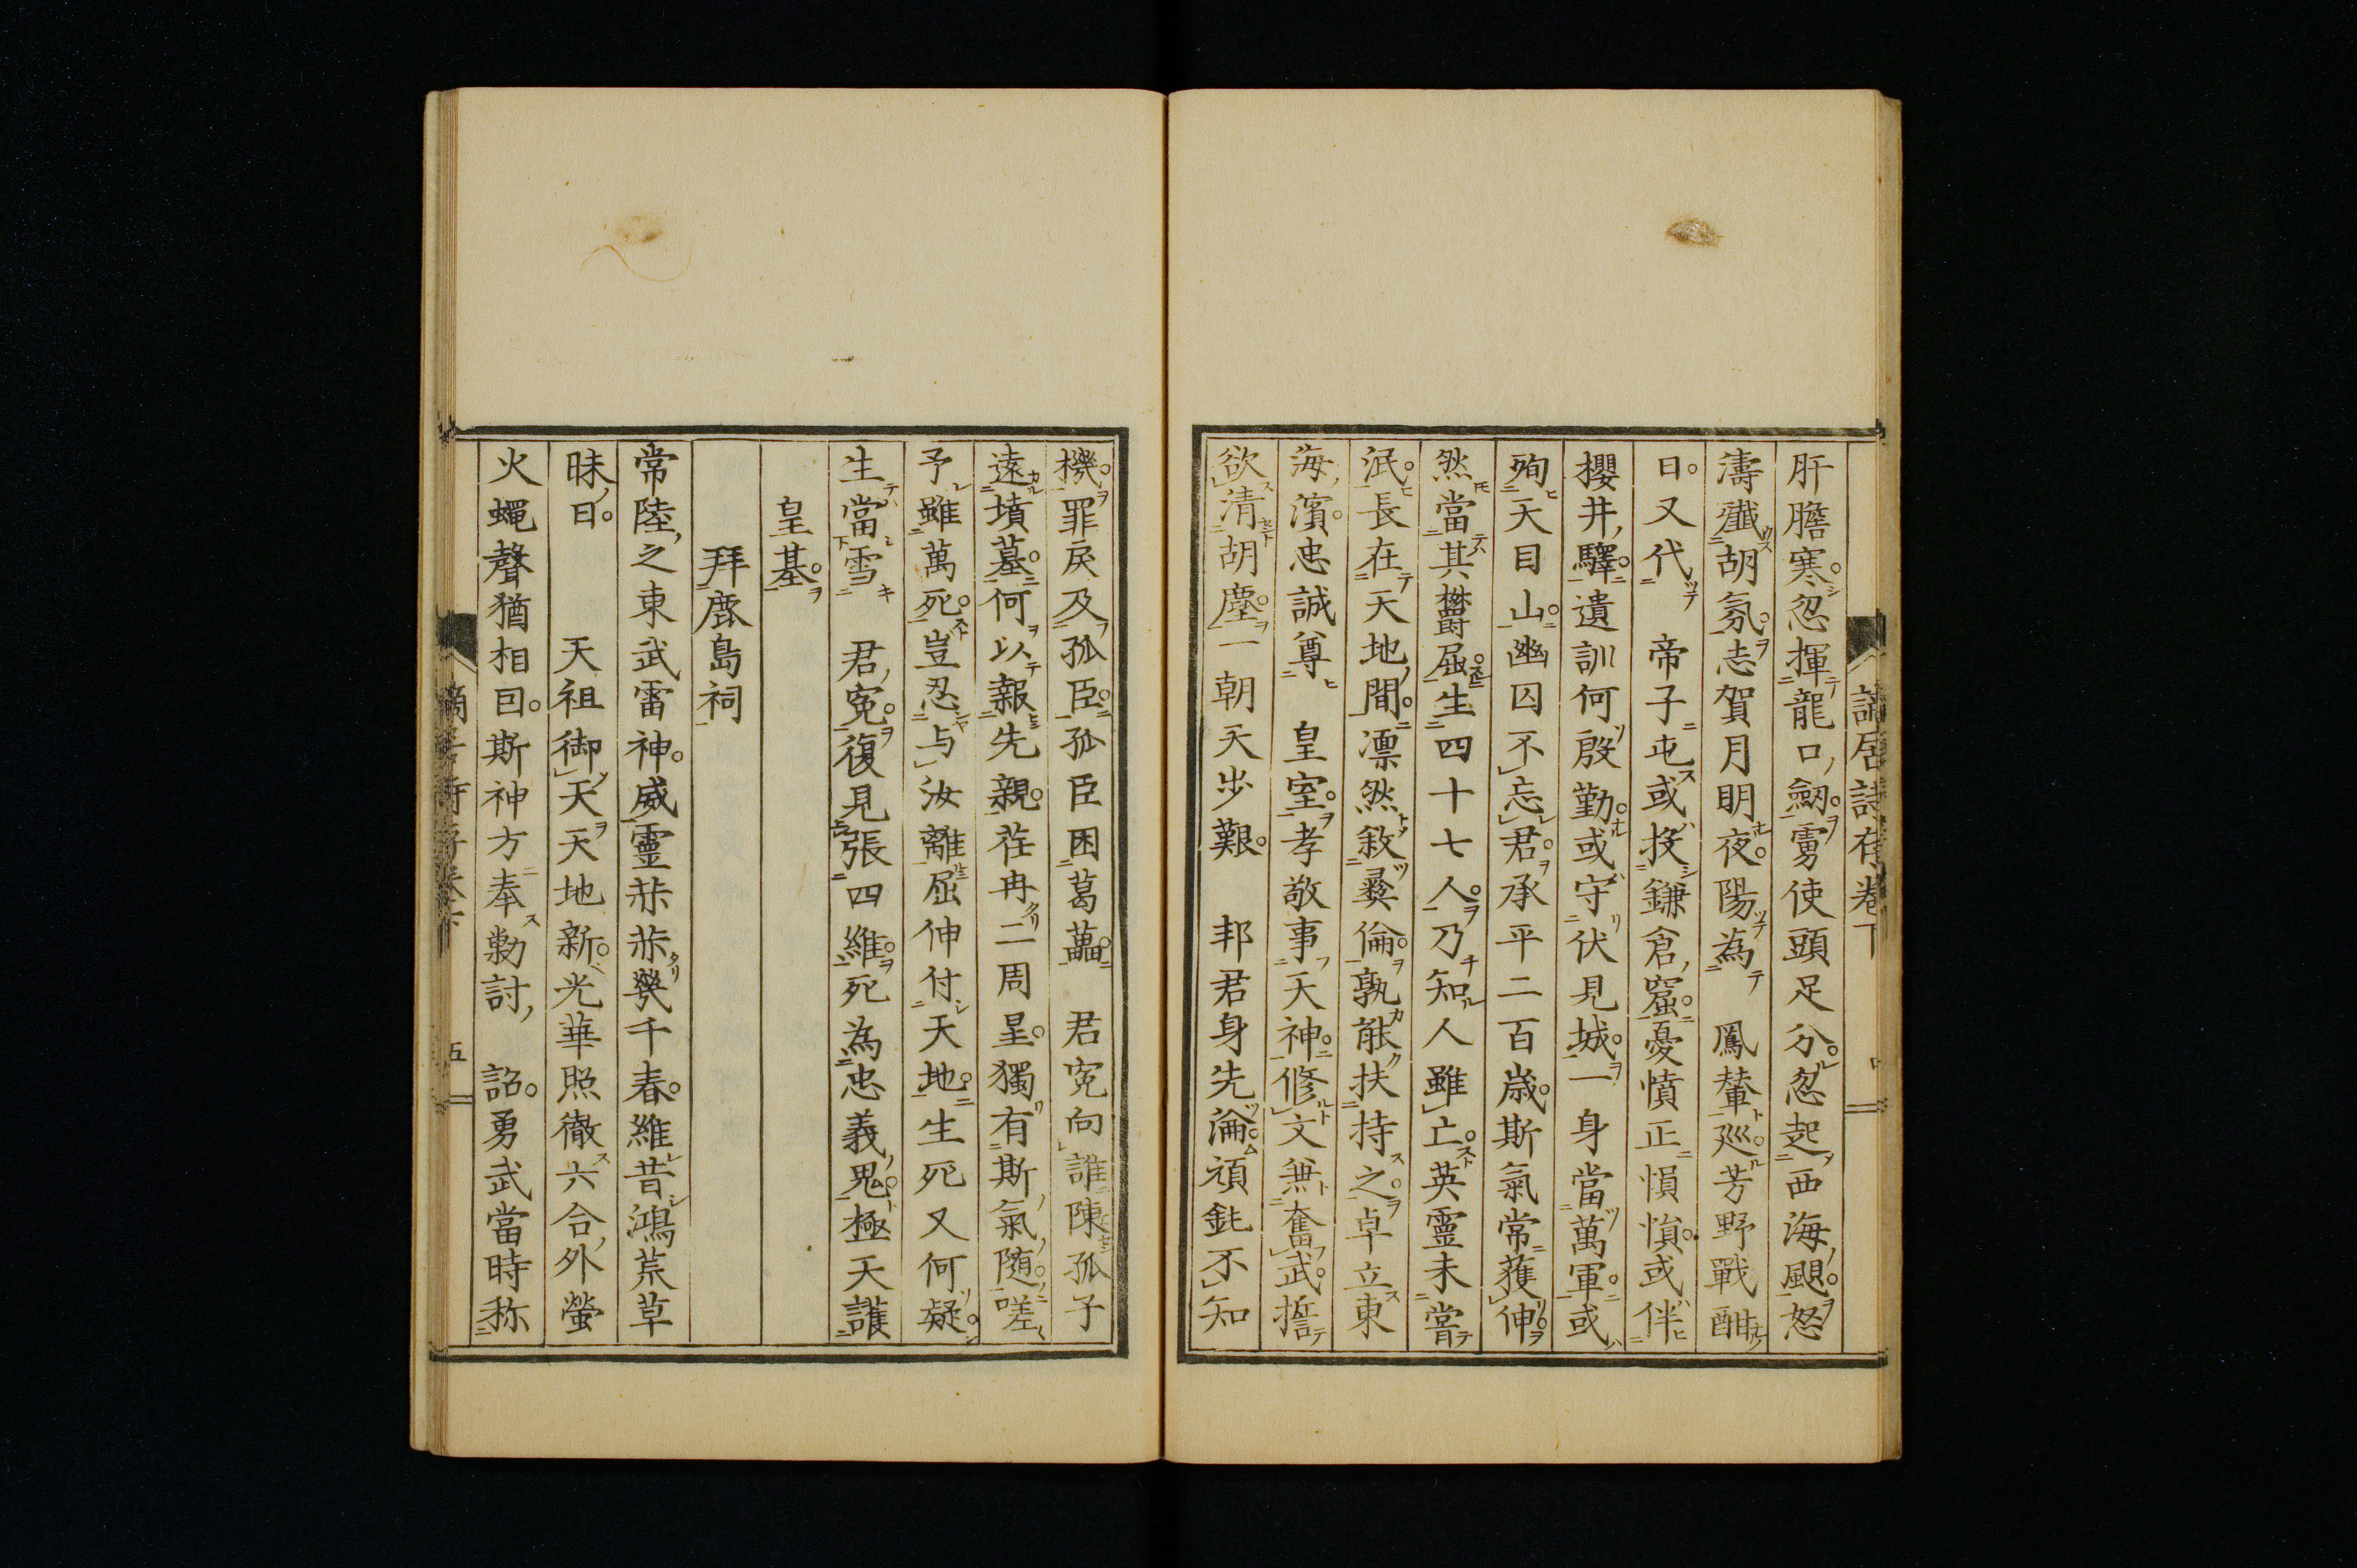 肝膽寒忽揮龍口劔虜使頭足分忽起西海颶怒
濤殲胡氛志賀月明夜陽為　鳳輦巡芳野戰酣
日又代　帝子屯或投鎌倉窟憂憤正愪愪或伴
櫻井驛遺訓何殷勤或守伏見城一身當萬軍或
殉天目山幽囚不忘君承平二百歳斯氣常獲伸
然當其鬱屈生四十七人乃知人雖亡英靈未嘗
泯長在天地間凛然敘彛倫孰能扶持之卓立東
海濱忠誠尊　皇室孝敬事天神修文兼奮武誓
欲清胡塵一朝天步艱　邦君身先淪頑鈍不知
機罪戾及孤臣孤臣困葛藟　君寃向誰陳孤子
遠墳墓何以報先親荏冉二周星獨有斯氣隨嗟
予雖萬死豈忍与汝離屈伸付天地生死又何疑
生當雪　君寃復見張四維死為忠義鬼極天護
皇基
拜鹿島祠
常陸之東武雷神威靈赫赫幾千春維昔鴻荒草
昧日　天祖御天天地新光華照徹六合外螢
火蠅聲猶相囙斯神方奉勅討　詔勇武當時称
五